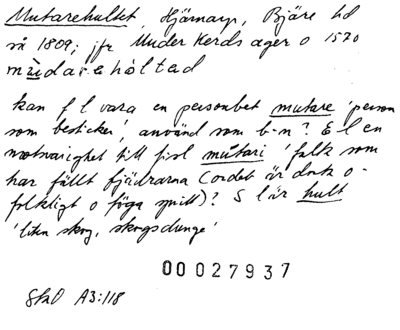 Mutarehultet, Hjärnarp, Bjäre hd
så 1809; jfr Muder Kerds ager o 1570
mùdarehòltad
kan f l vara en personbet mutare 'person
som besticker', använd som b-n? E l en
motsvarighet till fisl mútari 'falk som
har fällt fjädrarna (ordet är dock o-
folkligt o föga spritt)? S l är hult
'liten skog, skogsdunge'
00027937
SkO A3:118